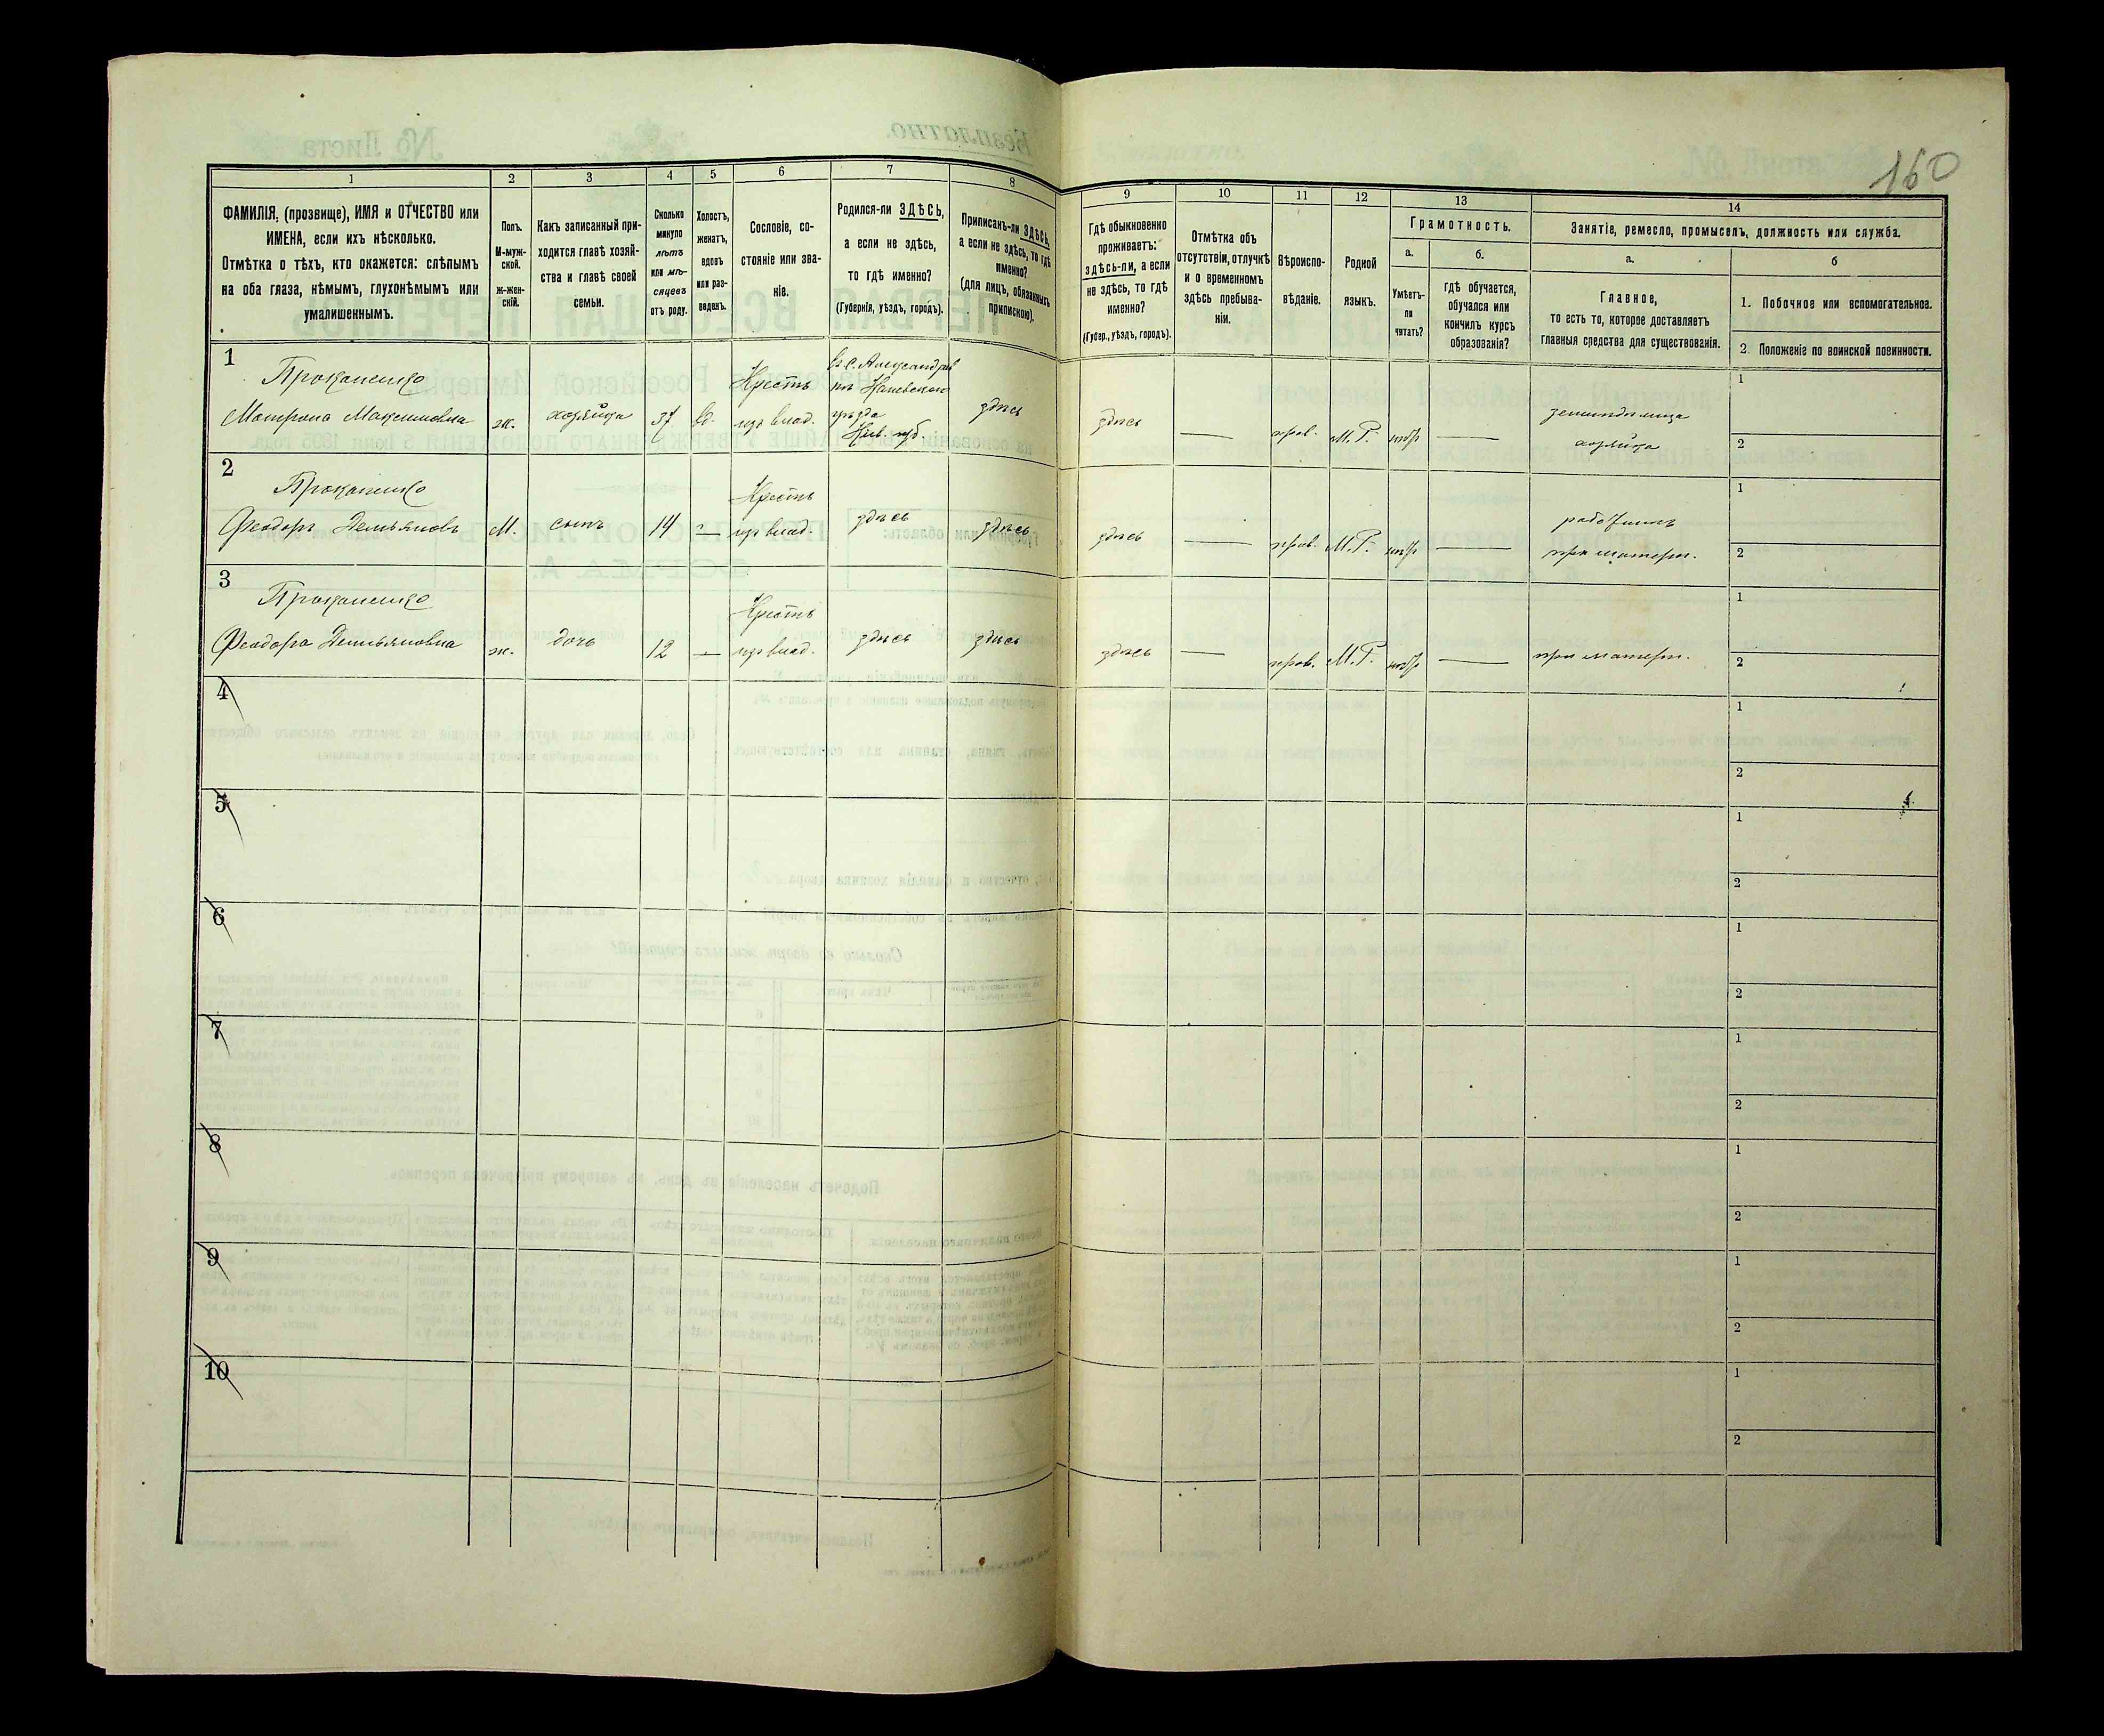 160
1
2
3
4
5
6
7
8
9
10
11
12
13
14
ФАМИЛІЯ, (прозвище), ИМЯ и ОТЧЕСТВО или
ИМЕНА, если ихъ нѣсколько.
Отмѣтка о тѣхъ, кто окажется: слѣпымъ
на оба глаза, нѣмымъ, глухонѣмымъ или
умалишеннымъ.
Полъ.
М-муж-
ской.
ж-жен-
скій.
Какъ записанный при-
ходится главѣ хозяй-
ства и главѣ своей
семьи.
Сколько
минуло
лѣтъ
или мѣ-
сяцевъ
отъ роду.
Холостъ,
женатъ,
вдовъ
или раз-
веденъ.
Сословіе, со-
стояніе или зва-
ніе.
Родился-ли ЗДѢСЬ,
а если не здѣсь,
то гдѣ именно?
(Губернія, уѣздъ, городъ).
Приписанъ-ли ЗДѢСЬ,
а если не здѣсь, то гдѣ
именно?
(для лицъ, обязанныхъ
припискою).
Гдѣ обыкновенно
проживаетъ:
здѣсь-ли, а если
не здѣсь, то гдѣ
именно?
(Губер., уѣздъ, городъ).
Отмѣтка объ
отсутствіи, отлучкѣ
и о временномъ
здѣсь пребыва-
ніи.
Вѣроиспо-
вѣданіе.
Родной
языкъ.
Грамотность.
а.
Умѣетъ-
ли
читать?
б.
гдѣ обучается,
обучался или
кончилъ курсъ
образованія?
Занятіе, ремесло, промыселъ, должность или служба.
а.
Главное,
то есть то, которое доставляетъ
главныя средства для существованія.
б
1. Побочное или вспомогательное.
2. Положеніе по воинской повинности.
1
Матрона Максимовна
ж.
хозяйка
37
вд.
Крестъ
изъ влад.
уѣзда
Кіев. губ.
здѣсь
здѣсь
—
прав.
М. Р.
—
хозяйка
1
2
2
Феодоръ Демьяновъ
М.
сынъ
14
—
Крестъ
изъ влад.
здѣсь
здѣсь
здѣсь
—
прав.
М. Р.
—
работникъ
при матери.
1
2
3
Феодора Демьяновна
ж.
дочь
12
—
Крестъ
изъ влад.
здѣсь
здѣсь
здѣсь
—
прав.
М. Р.
—
при матери.
1
2
4
1
2
5
1
2
6
1
2
7
1
2
8
1
2
9
1
2
10
1
2